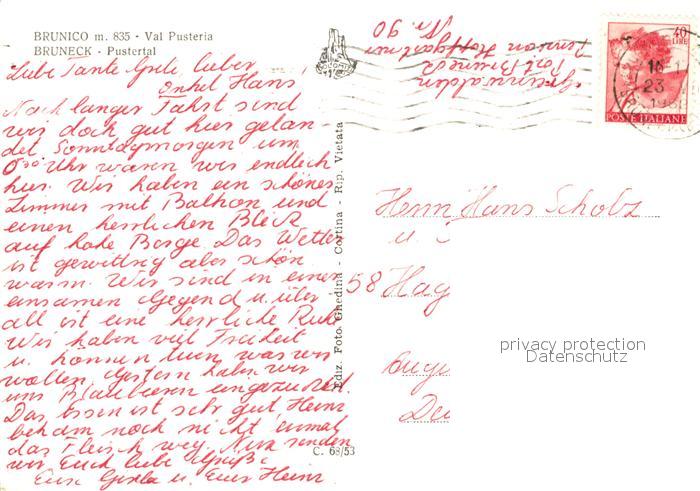 BRUNICO m. 835 - Val Pusteria
BRUNECK - Pustertal
Liebe Tante Grete, lieber
Onkel Hans
Nach langer Fahrt sind
wir doch gut hier gelan-
det. Sonntagmorgen um
Uhr waren wir endlich
hier. Wir haben ein schönes
Zimmer mit Balkon und
einen herrlichen Blick
auf hohe Berge. Das Wetter
ist gewittrig aber schön
warm. Wir sind in einer
einsamen Gegend u. über
all ist eine herrliche Ruhe
Wir haben viel Freiheit
u. können tuen was wir
wollen. Gestern haben wir
uns Blaubeeren eingezuckert.
Das Essen ist sehr gut, Heinz
bekam noch nicht einmal
das Fleisch weg. Nun senden
wir Euch liebe Grüße
Eure Gisela u. Euer Heinz
Ediz. Foto Ghedina - Cortina - Rip. Vietata
C. 68/53
Grünwalden
Post Bruneck
Pension Hopfgartner
Nr. 90
40
LIRE
POSTE ITALIANE
18
23
Herrn Hans Scholz
u.
58 Hag
Augu
Deu
privacy protection
Datenschutz